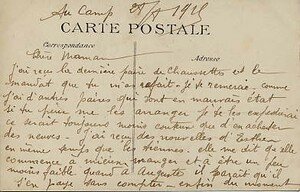 Au Camp
CARTE POSTALE
Correspondance
Adresse
Chère Maman
J'ai reçu la dernière paire de Chaussettes et le
mandat que tu m'as fait. Je te remercie. comme
j'ai d'autres paires qui sont en mauvais état
si tu peux me les arranger je te les expédierai
ce serait toujours moins couteux que d'en acheter
des neuves. J'ai reçu des nouvelles d'
en même temps que les tiennes, elle me dit qu'elle
commence à mieux manger et à être un peu
moins faible quant à Auguste il paraît qu'il
s'en paye sans compter - enfin du moment